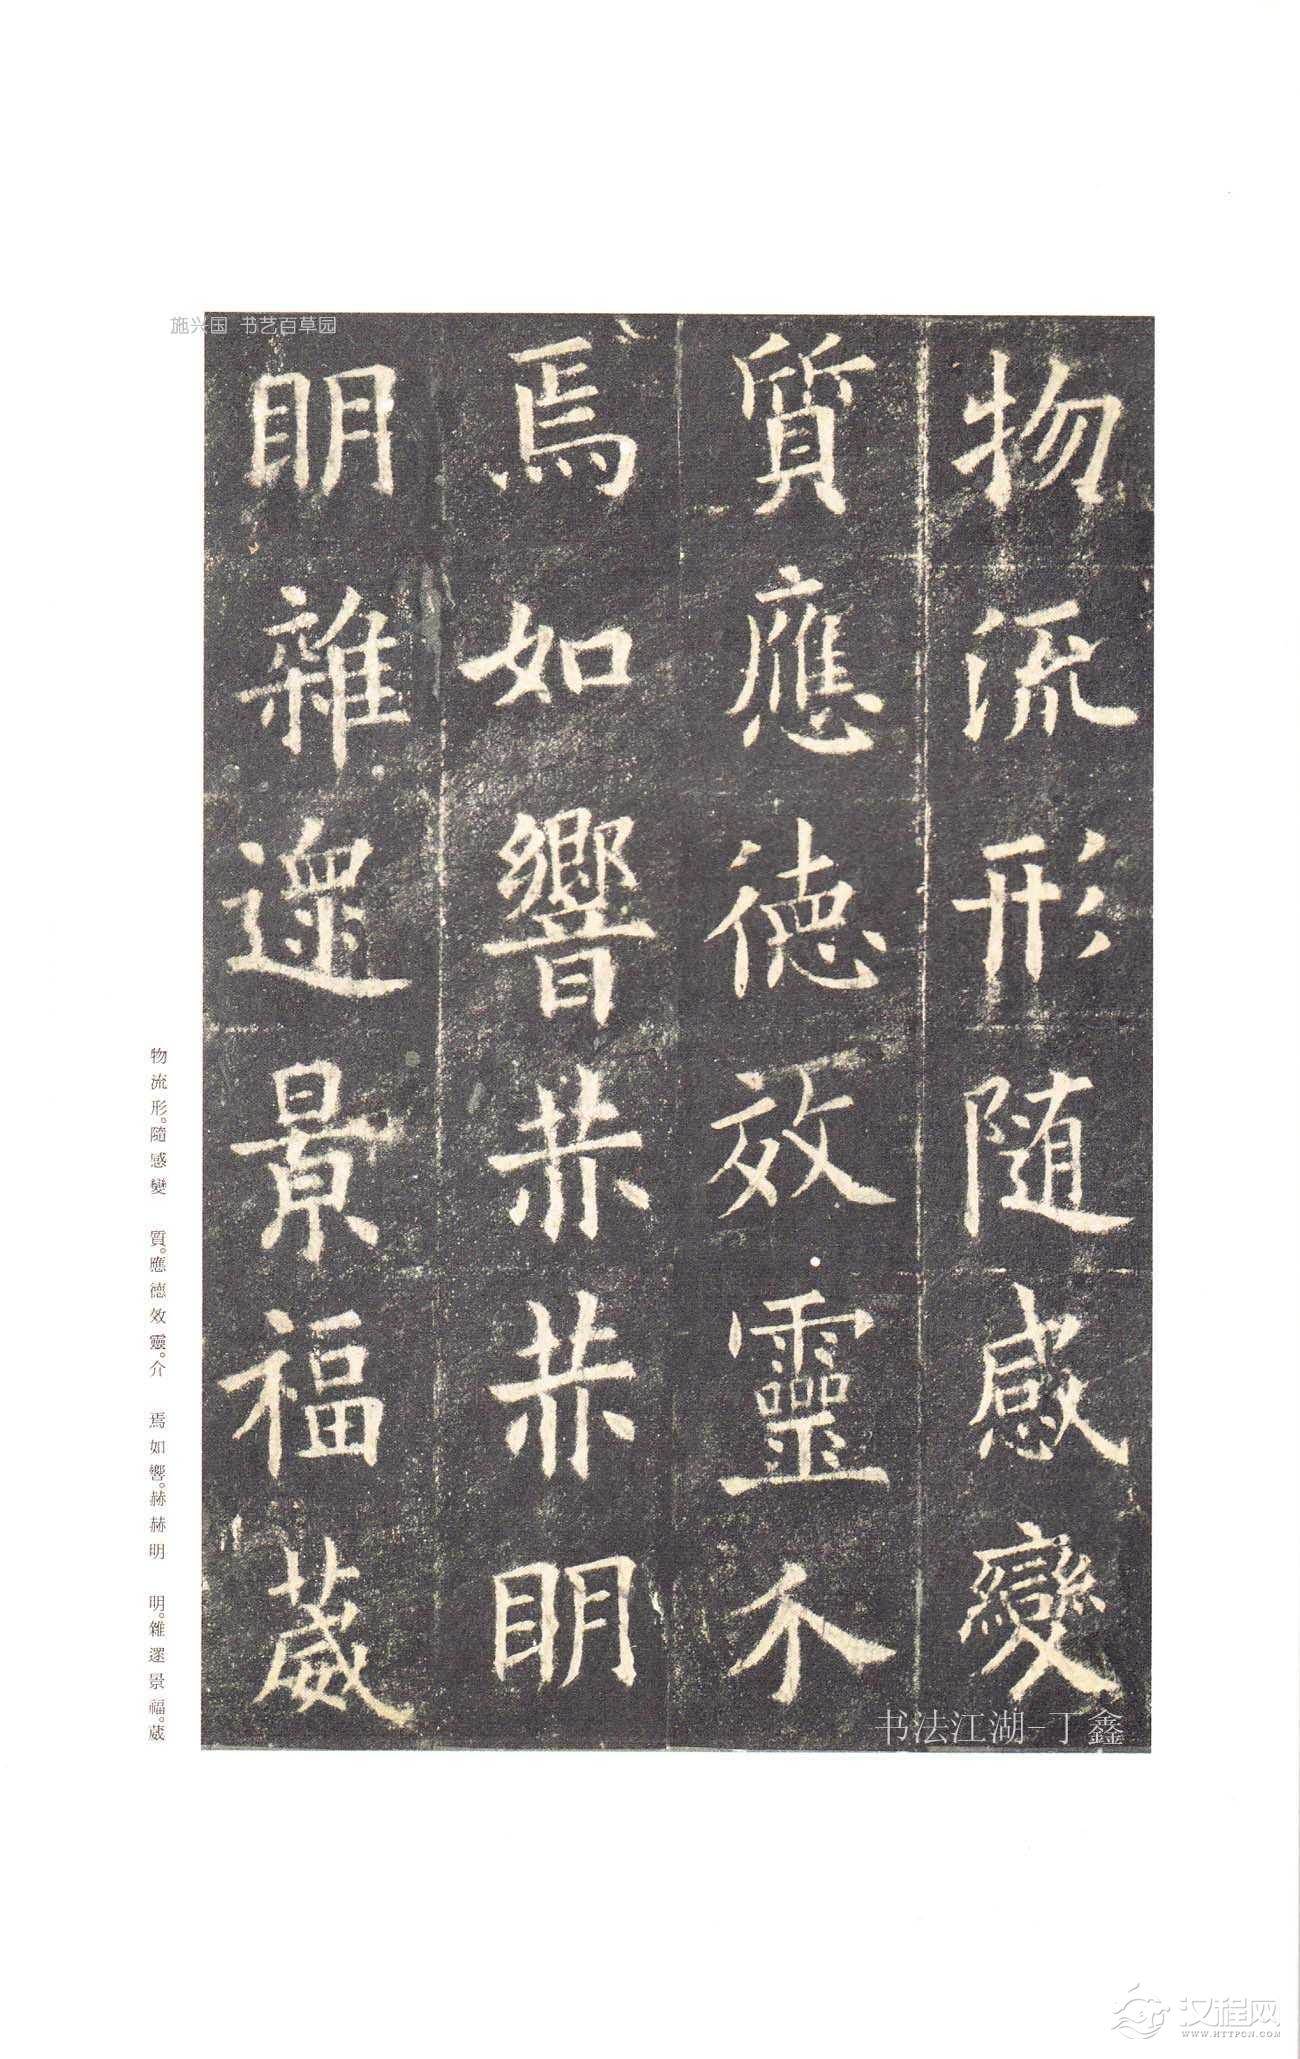 施兴国 书艺百草园
物流形随感變
質應德效靈介
焉如響赫赫明
明雜遝景福葳
物流形。隨感變 質。應德效靈。介 焉如響。赫赫明 明。雜遝景福。葳
书法江湖-丁鑫
汉程网
WWW.HTTPCN.COM